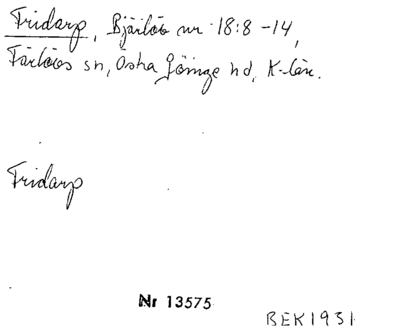 Fridarp, Bjärlöv nr 18:8-14,
Färlövs sn, Östra Göinge hd, K-län.
Fridarp
Nr 13575
BEK1931